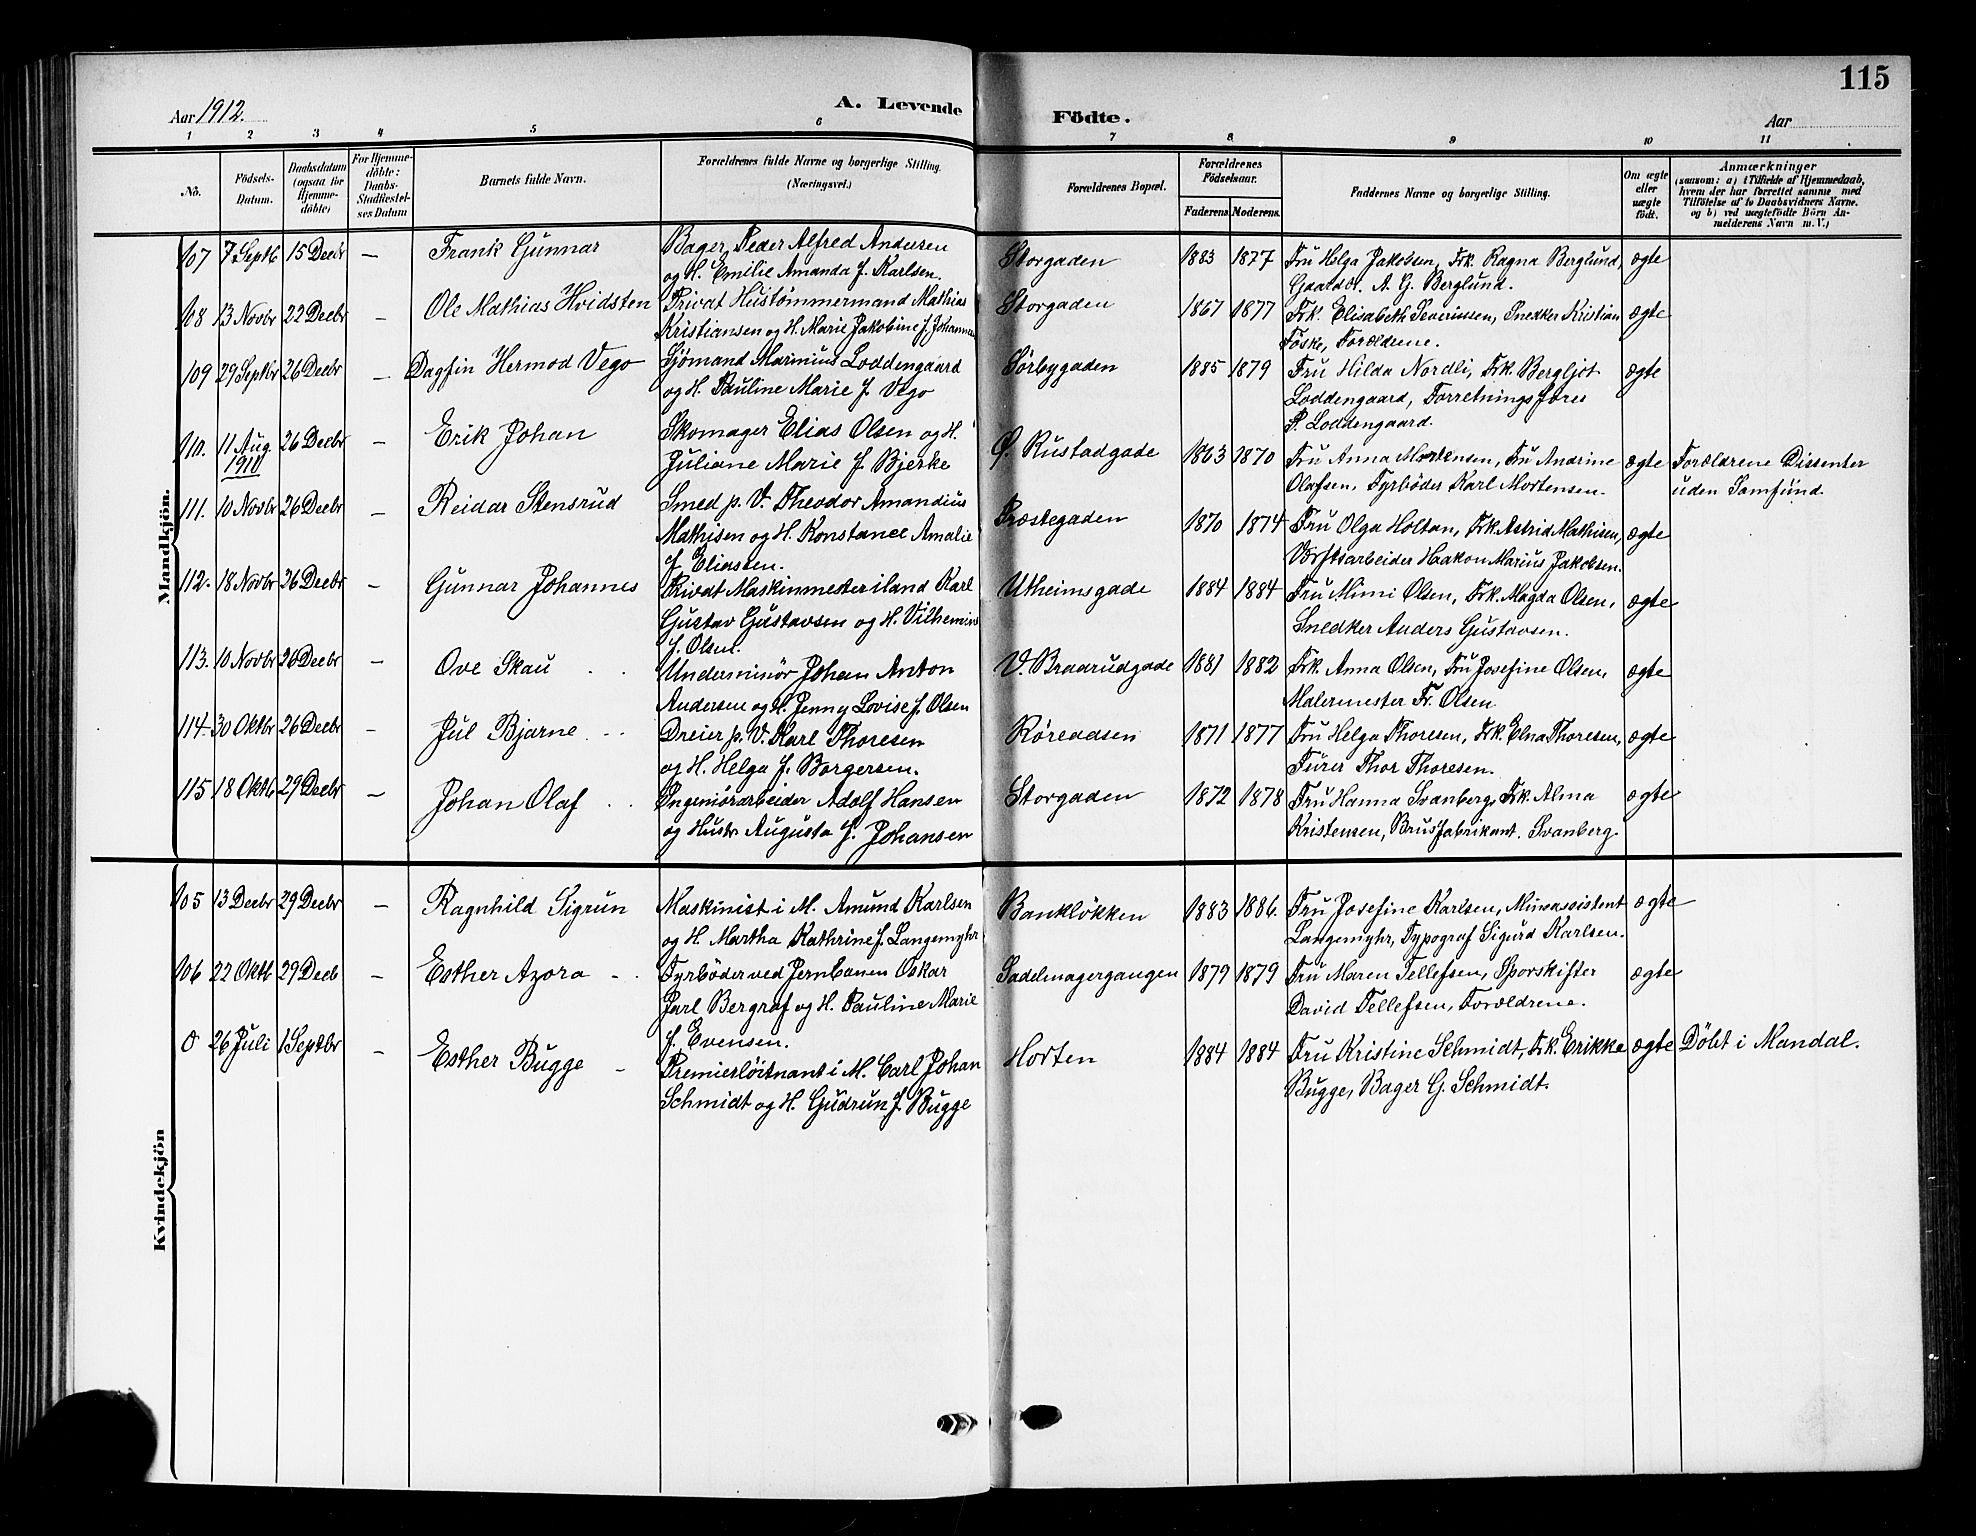 115
Aar 1912.
A. Levende
Födte.
Aar
1 2 3 4 5 6 7 8 9 10 11
No.
Födsels-
Datum.
Daabsdatum
(ogsaa for
Hjemme-
döbte)
For Hjemme-
döbte:
Daabs-
Stadfæstel-
ses Datum
Barnets fulde Navn.
Forældrenes fulde Navne og borgerlige Stilling.
(Næringsvei.)
Forældrenes Bopæl.
Forældrenes
Födselsaar.
Faderens.
Moderens.
Faddernes Navne og borgerlige Stilling.
Om ægte
eller
uægte
født.
Anmærkninger
(saasom: a) i Tilfælde af Hjemmedaab,
hvem der har forrettet samme med
Tilföielse af to Daabsvidners Navne.
og b) ved uægtefödte Börn An-
melderens Navn m. V.)
Mandkjön.
107 7 Septb 15 Decbr — Frank Gunnar Bager, Peder Alfred Andersen Storgaden 1883 1877 Fru Helga Jakobsen, Frk. Ragna Berglund, ægte
og H. Emilie Amanda f. Karlsen. Gaardbr. A. G. Berglund.
108 13 Novbr 22 Decbr — Ole Mathias Hvidsten Privat Hustømmermand Mathias Storgaden 1867 1877 Frk. Elisabeth Severinsen, Snedker Kristian ægte
Kristiansen og H. Marie Jakobine f. Johannsen Føske, Forældrene.
109 29 Septbr 26 Decbr — Dagfin Hermod Vego Sjømand Marinius Loddengaard Sørbygaden 1885 1879 Fru Hilda Nordli, Frk. Bergljot ægte
og H. Pauline Marie f. Vego Loddengaard, Forretningsfører
P. Loddengaard.
110. 11 Aug. 26 Decbr — Erik Johan Skomager Elias Olsen og H. Ø. Rustadgade 1863 1870 Fru Anna Mortensen, Fru Andrine ægte Forældrene Dissenter
1911 Juliane Marie f. Bjerke Olafsen, Fyrbøder Karl Mortensen. uden Samfund.
111. 10 Novbr 26 Decbr — Reidar Stensrud Smed p. V. Theodor Amandius Præstegaden 1870 1874 Fru Olga Holtan, Frk. Astrid Mathisen, ægte
Mathisen og H. Konstance Amalie Værftsarbeider Haakon Marius Jakobsen.
f. Eliassen.
112. 18 Novbr 26 Decbr — Gunnar Johannes Privat Maskinmester iland Karl Utheimsgade 1884 1884 Fru Mimi Olsen, Frk. Magda Olsen, ægte
Gustav Gustavsen og H. Vilhemine Snedker Anders Gustavsen.
f. Olsen.
113. 10 Novbr 26 Decbr — Ove Skau Underminør Johan Anton V. Braarudgade 1881 1882 Frk. Anna Olsen, Fru Josefine Olsen, ægte
Andersen og H. Jenny Lovise f. Olsen Malermester Fr. Olsen
114. 30 Oktbr 26 Decbr — Jul Bjarne Dreier p. V. Karl Thoresen Røreadsen 1871 1877 Fru Helga Thoresen, Frk. Elna Thoresen, ægte
og H. Helga f. Borgersen. Furer Thor Thoresen.
115 18 Oktb 29 Decbr — Johan Olaf Ingeniørarbeider Adolf Hansen Storgaden 1872 1878 Fru Hanna Svanberg, Frk. Alma ægte
og Hustr. Augusta f. Johansen Kristensen, Brusfabrikant Svanberg
Kvindekjön
105 13 Decbr 29 Decbr — Ragnhild Sigrun Maskinist i M. Amund Karlsen Bankløkken 1883 1886. Fru Josefine Karlsen, Mineassistent ægte
og H. Martha Kathrine f. Langemyhr Langemyhr, Typograf Sigurd Karlsen.
106 22 Oktb 29 Decb — Esther Azora Fyrbøder ved Jernbanen Oskar Sadelmagergangen 1879 1879 Fru Maren Tellefsen, Sporskifter ægte
Jarl Bergraf og H. Pauline Marie David Tellefsen, Forældrene.
f. Evensen.
0 26 Juli 1 Septbr — Esther Bugge Premierløitnant i M. Carl Johan Horten 1884 1884 Fru Kristine Schmidt, Frk. Erikke ægte Døbt i Mandal.
Schmidt og H. Gudrun f. Bugge Bugge, Bager G. Schmidt.